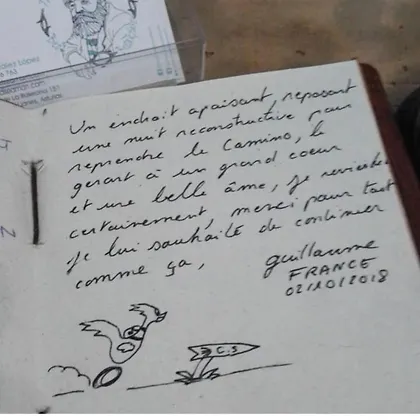 ález López
763
Un endroit apaisant, reposant
une nuit reconstructive pour
reprendre le Camino, le
gérant à un grand coeur
et une belle âme, je reviendrai
certainement, merci pour tout
je lui souhaite de continuer
comme ça,
guillaume
FRANCE
02/10/2018
C.S